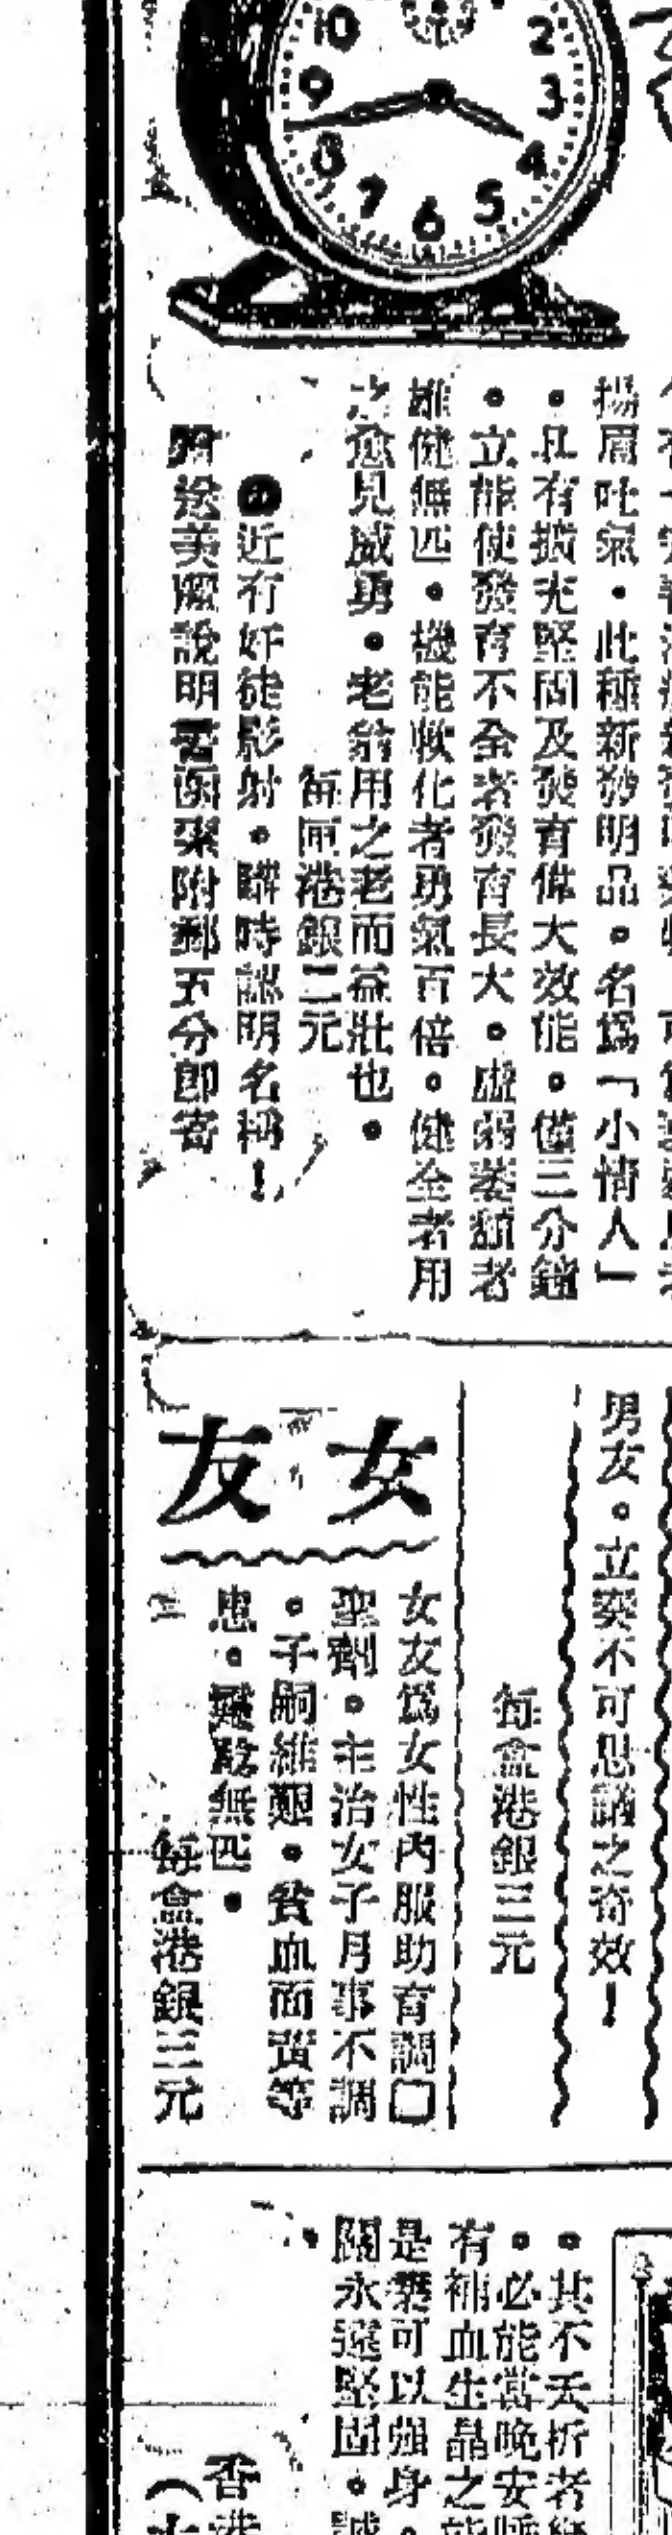 10
2
9
3
8
4
7
6
5
揚眉吐氣・此種新發明品。名爲「小情人」
・具有擴充堅固及發育偉大效能。僅三分鐘
。立能使發育不全者發育長大。虛弱萎頹者
雄健無匹・機能軟化者勇氣百倍。健全者用
之愈見威勇・老翁用之老而益壯也・
每匣港銀二元
近有奸徒影射・購時認明名稱!
附送美麗說明書函索附郵五分即寄
男女。立奏不可思議之奇效!
每盒港銀三元
女友
女友爲女性內服助育調□
聖劑。主治女子月事不調
。子嗣維艱・貧血面黃等
患・靈驗無匹・
每盒港銀三元
・其不夭折者
・必能當晚安睡
有補血生晶之
是藥可以強身・
關永遠堅固・誠
香港